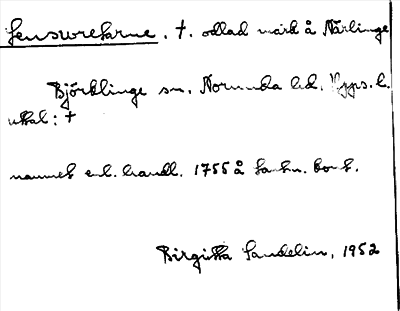 Lensworetarne, †. odlad mark å Nårlinge
Björklinge sn, Norunda hd. Upps. l.
uttal: †
namnet enl. handl. 1755 å Lantm. kont.
Birgitta Sandelin, 1952